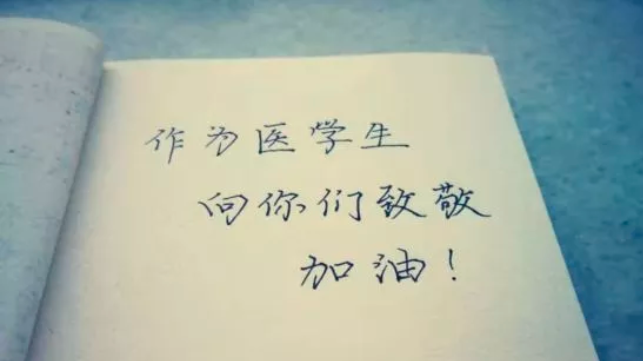 作为医学生
向你们致敬
加油！